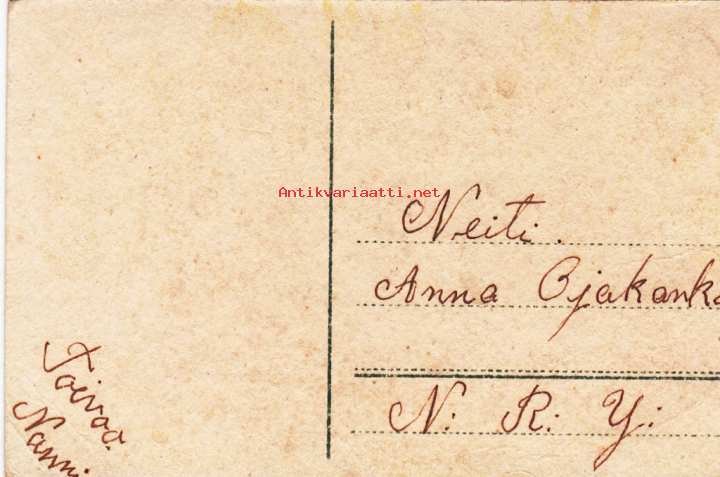 Antikvariaatti.net
Neiti.
Anna Ojakank
N: R: Y:
Toivoo.
Nanni